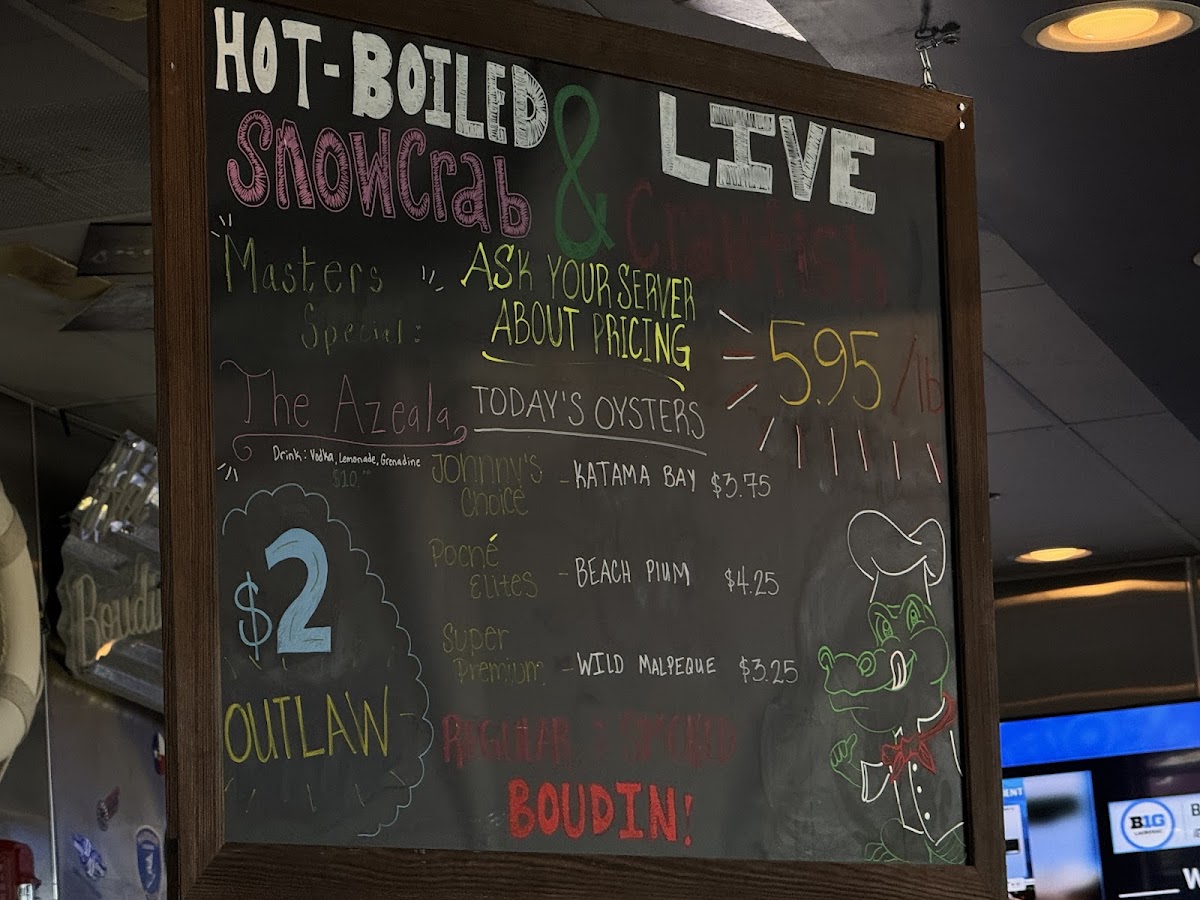 HOT-BOILED & LIVE
SnowCrab
Crawfish
Masters
Special:
ASK YOUR SERVER
ABOUT PRICING
5.95/lb
The Azeala
Drink: Vodka, Lemonade, Grenadine
$10
TODAY'S OYSTERS
Johnny's
Choice - KATAMA BAY $3.75
Poché
Elites - BEACH PlUM $4.25
Super
Premium - WILD MALPEQUE $3.25
$2
OUTLAW
REGULAR & SMOKED
BOUDIN!
Boudin
B1G